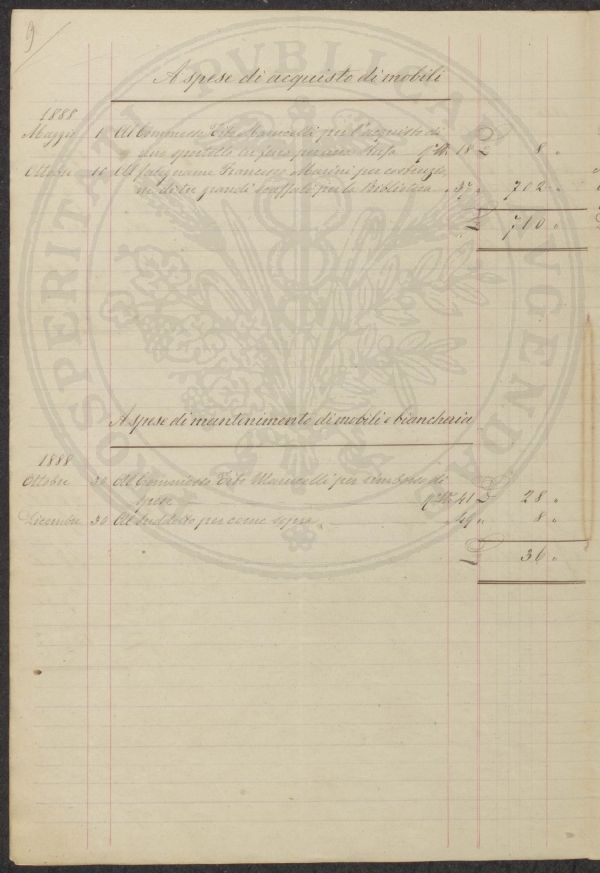 9
A spese di acquisto di mobili
1888
Maggio 1 Al Commesso Tito Marucelli per l'acquisto di
due in ferro per una Stufa 18 £ 8 "
Ottobre 10 Al falegname Francesco Marini per costruzio
ne di tre grandi scaffali per la Biblioteca " 37 " 702 "
£ 710 "
A spese di mantenimento di mobili e biancheria
1888
Ottobre 20 Al Commesso Tito Marucelli per rimborso di
spese 41 £ 28 "
Dicembre 30 Al suddetto per come sopra " 49 " 8 "
£ 36 "
PUBLICAE PROSPERITATI AUGENDAE